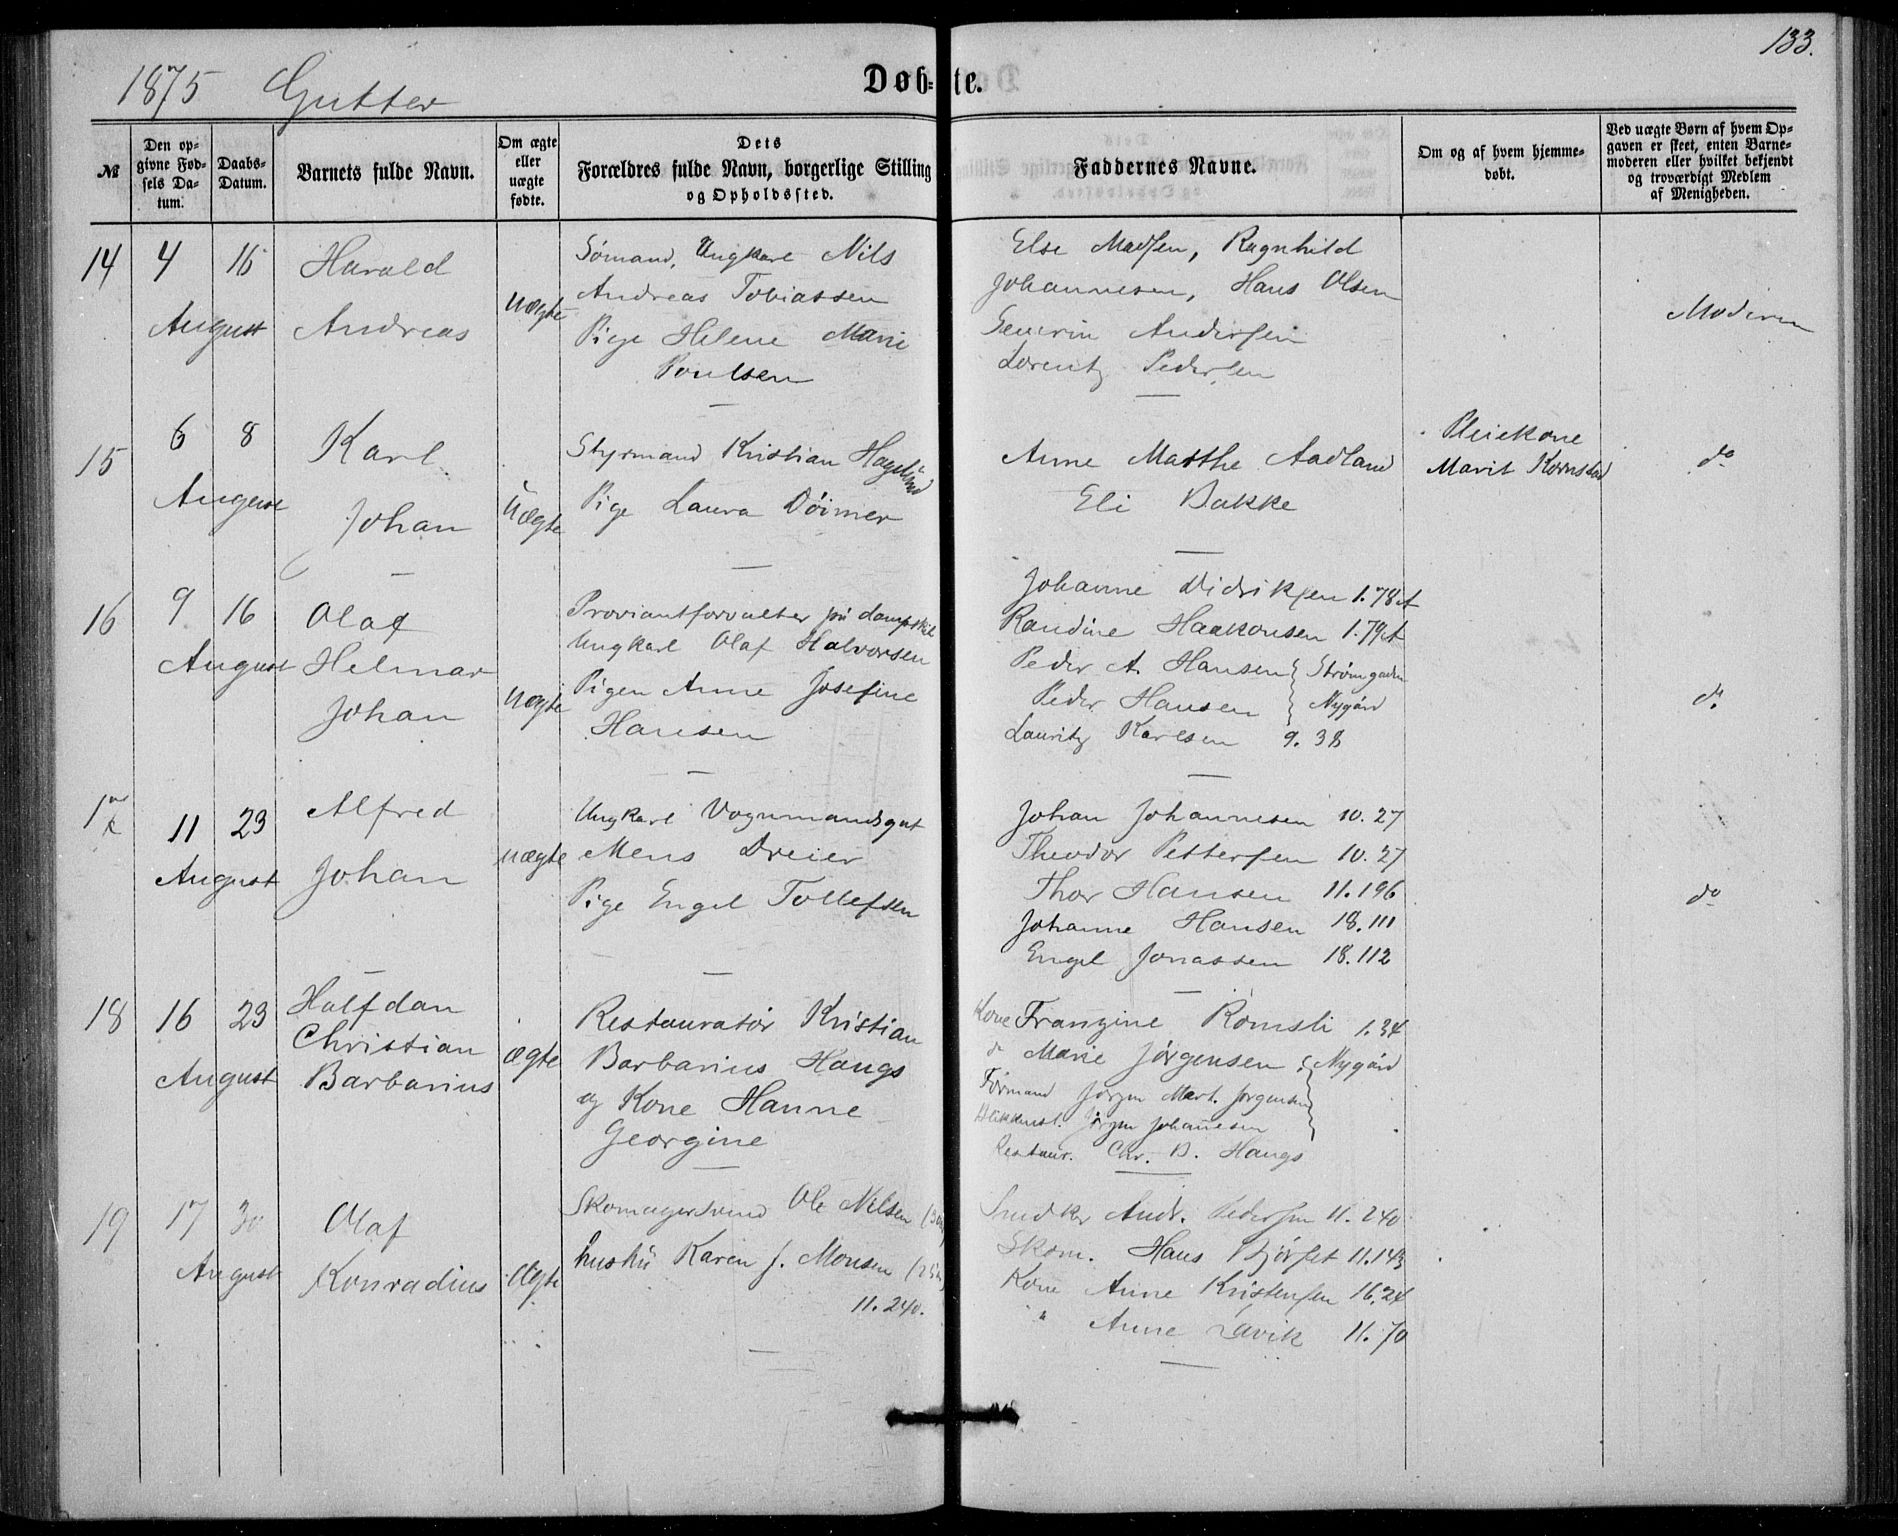 133.
1875 Gutter
Døb-te.
№
Den op-
givne Fød-
sels Da-
tum.
Daabs-
Datum.
Barnets fulde Navn.
Om ægte
eller
uægte
fødte.
Dets
Forældres fulde Navn, borgerlige Stilling
og Opholdssted.
Faddernes Navne.
Om og af hvem hjemme-
døbt.
Ved uægte Børn af hvem Op-
gaven er skeet, enten Barne-
moderen eller hvilket bekjendt
og troværdigt Medlem
af Menigheden.
14
4
August
16
Harald
Andreas
Uægte
Sømand, Ungkarl Nils
Andreas Tobiassen
Pige Helene Marie
Poulsen
Else Madsen, Ragnhild
Johannesen, Hans Olsen
Severin Andersen
Lorentz Pedersen
Moderen
15
6
August
8
Karl
Johan
Uægte
Styrmand Kristian Hagelund
Pige Laura Döimer
Anne Marthe Aadland
Eli Bakke
Pleiekone
Marit Kornstad
do
16
9
August
16
Olaf
Helmar
Johan
Uægte
Proviantforvalter på dampskib
Ungkarl Olaf Halvorsen
Pigen Anne Josefine
Hansen
Johanne Didriksen 1.78A
Randine Haakonsen 1.79A
Peder A. Hansen } Strømgaden
Peder Hansen } Nygård
Lauritz Karlsen 9.38
do
17
11
August
23
Alfred
Johan
uægte
Ungkarl Vognmandsgut
Mens Dreier
Pige Engel Tollefsen
Johan Johannesen 10.27
Theodor Pettersen 10.27
Thor Hansen 11.196
Johanne Hansen 18.111
Engel Jonassen 18.112
do
18
16
August
23
Halfdan
Christian
Barbarius
ægte
Restauratör Kristian
Barbarius Haugs
og Kone Hanne
Georgine
Kone Franzine Romsli 1.34
do Marie Jørgensen } Nygård
Formand Jörgen Mart. Jørgensen
Jörgen Johannesen
Restaur. Chr. B. Haugs
19
17
August
30
Olaf
Konradius
Ægte
Skomagersvend Ole Nilsen
hustru Karen J. Monsen
11.240.
Snedker Andr. Pedersen 11.240
Skom. Hans Bjørset 11.143
Kone Anne Kristensen 16.24
" Anne Lavik 11.70